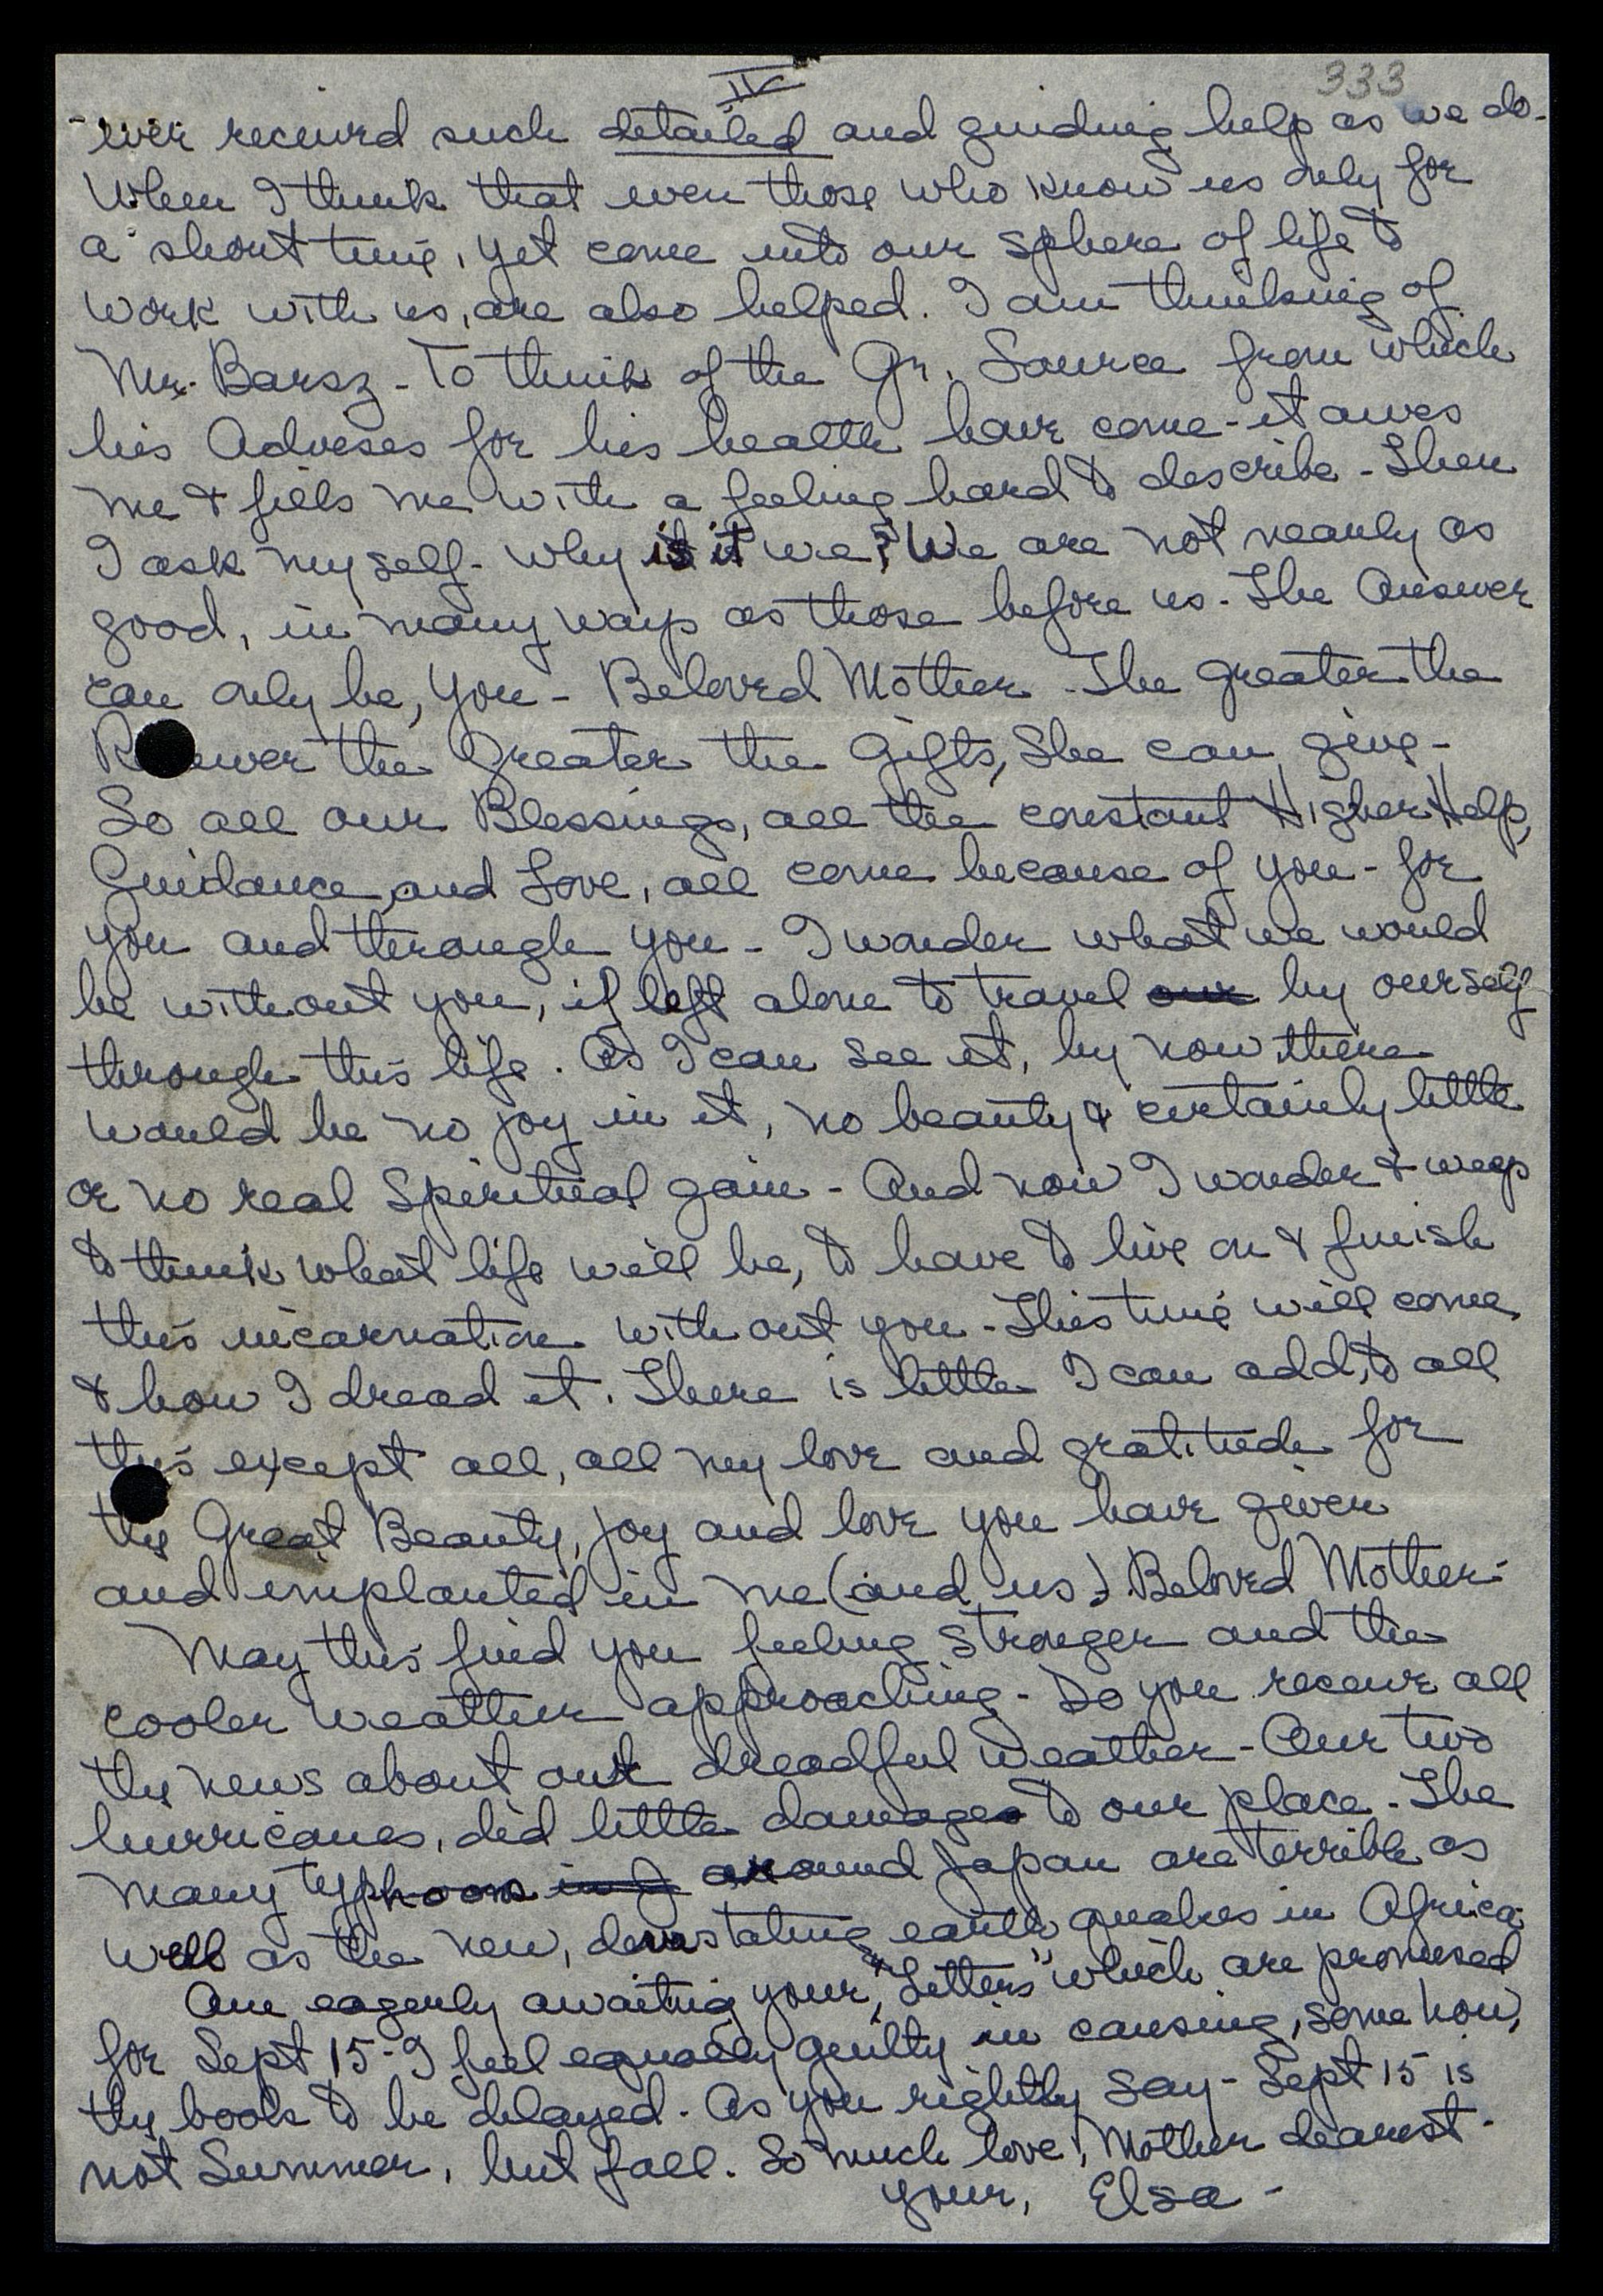 IV
333
ever received such detailed and guiding help as we do.
When I think that even those who know us only for
a short time, yet come into our sphere of life to
work with us, are also helped. I am thinking of
Mr. Barsz - To think of the Gr. Source from which
his Advices for his health have come - it awes
me & fills me with a feeling hard to describe - Then
I ask myself - why is it we? We are not nearly as
good, in many ways as those before us - The Answer
can only be, you - Beloved Mother - The greater the
the Greater the Gifts, She can give -
So all our Blessings, all the constant Higher Help,
Guidance, and Love, all come because of you - for
you and through you - I wonder what we would
be without you, if left alone to travel our by ourself
through this life. As I can see it, by now there
would be no joy in it, no beauty & certainly little
or no real Spiritual gain - And now I wonder & weep
to think what life will be, to have to live on & finish
this incarnation without you - This time will come,
& how I dread it. There is little I can add, to all
this except all, all my love and gratitude for
the Great Beauty, joy and love you have given
and implanted in me (and us) Beloved Mother -
May this find you feeling stronger and the
cooler weather approaching - Do you receive all
the news about our dreadful weather - Our two
hurricanes, did little damage to our place - The
many typhoons in J around Japan are terrible as
well as the new, devastating earth quakes in Africa.
Am eagerly awaiting your, "Letters" which are promised
for Sept 15 - I feel equally guilty in causing, some how,
the book to be delayed. As you rightly say - Sept 15 is
not Summer, but fall. So much love, Mother dearest -
your, Elsa -